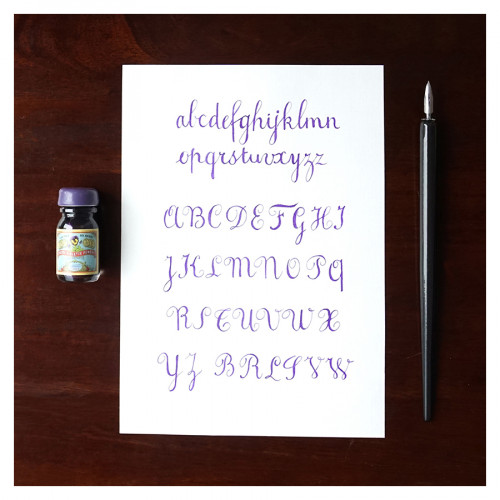 abcdefghijklmn
opqrstuvxyzz
ABCDEFGHI
JKLMNOPQ
RSTUVWX
YZ BRLSVW